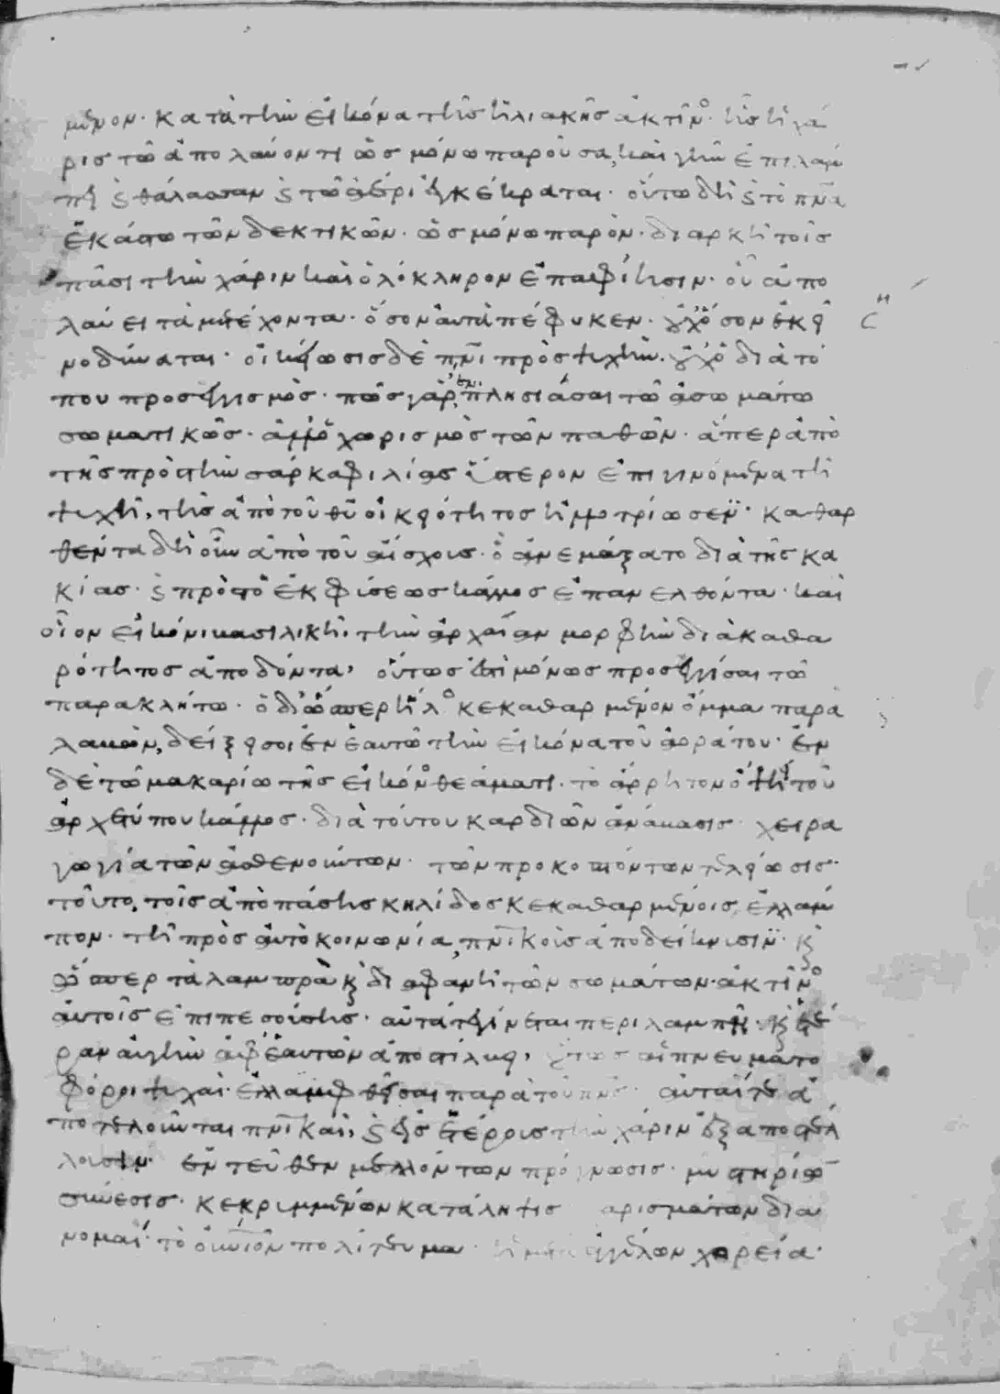 μενον· κατὰ τὴν εἰκόνα τῆς ἡλιακῆς ἀκτῖνος· ἧς ἡ χά
ρις τῶ ἀπολαύοντι ὡς μόνω παροῦσα, καὶ γῆν ἐπιλάμ
πει καὶ θάλασσαν καὶ τῶ ἀέρι ἐγκέκραται· οὕτω δὴ καὶ τὸ πνα
ἑκάστω τῶν δεκτικῶν· ὡς μόνω παρὸν· διαρκῆ τοῖς
πᾶσι τὴν χάριν καὶ ὁλόκληρον ἐπαφίησιν· οὗ ἀπο
λαύει τὰ μετέχοντα· ὅσον αὐτὰ πέφυκεν· οὐχ ὅσον ἐκεῖ
νο δύναται· οἰκείωσις δὲ πνι πρὸς ψυχὴν· οὐχ ὁ διὰ τό
που προσεγγισμὸς· πῶς γὰρ ἂν πλησιάσαι τῶ ἀσωμάτω
σωματικῶς· ἀλλ' ὁ χωρισμὸς τῶν παθῶν· ἅπερ ἀπὸ
τῆς πρὸς τὴν σάρκα φιλίας ὕστερον ἐπιγινόμενα τῆ
ψυχῆ, τῆς ἀπὸ τοῦ θυ οἰκειότητος ἠλλοτρίωσεν· καθαρ
θέντα δὴ οὖν ἀπὸ τοῦ αἴσχους· ὃ ἀνεμάξατο διὰ τῆς κα
κίας· καὶ πρὸς τὸ ἐκ φύσεως κάλλος ἐπανελθόντα· καὶ
οἷον εἰκόνι βασιλικῆ τὴν ἀρχαίαν μορφὴν διὰ καθα
ρότητος ἀποδόντα, οὕτως ἐστὶ μόνως προσεγγίσαι τῶ
παρακλήτω· ὁ δὲ ὥσπερ ἥλιος κεκαθαρμένον ὄμμα παρα
λαβὼν, δείξει σοι ἐν ἑαυτῶ τὴν εἰκόνα τοῦ ἀοράτου· ἐν
δὲ τῶ μακαρίω τῆς εἰκόνος θεάματι· τὸ ἄρρητον ὄψει τοῦ
ἀρχετύπου κάλλος· διὰ τούτου καρδιῶν ἀνάβασις· χειρα
γωγία τῶν ἀσθενούντων· τῶν προκοπτόντων τελείωσις·
τοῦτο, τοῖς ἀπὸ πάσης κηλίδος κεκαθαρμένοις, ἐλλάμ
πον· τῆ πρὸς αὐτὸ κοινωνία, πνικοὺς ἀποδείκνυσιν· καὶ
ὥσπερ τὰ λαμπρὰ καὶ διαφανῆ τῶν σωμάτων· ἀκτῖνος
αὐτοῖς ἐπιπεσούσης· αὐτά τε γίνεται περιλαμπῆ· καὶ ἑτέ
ραν αὐγὴν ἀφ' ἑαυτῶν ἀποστίλβει, οὕτως αἱ πνευματο
φόροι ψυχαὶ ἐλλαμφθεῖσαι παρὰ τοῦ πνς· αὐταί τε ἀ
ποτελοῦνται πνικαὶ, καὶ εἰς ἑτέρους τὴν χάριν ἐξαποστέλ
λουσιν· ἐντεῦθεν μελλόντων πρόγνωσις· μυστηρίων
σύνεσις· κεκρυμμένων κατάληψις χαρισμάτων δια
νομαί· τὸ οὐνιον πολίτευμα· ἡ μετὰ ἀγγέλων χορεία·